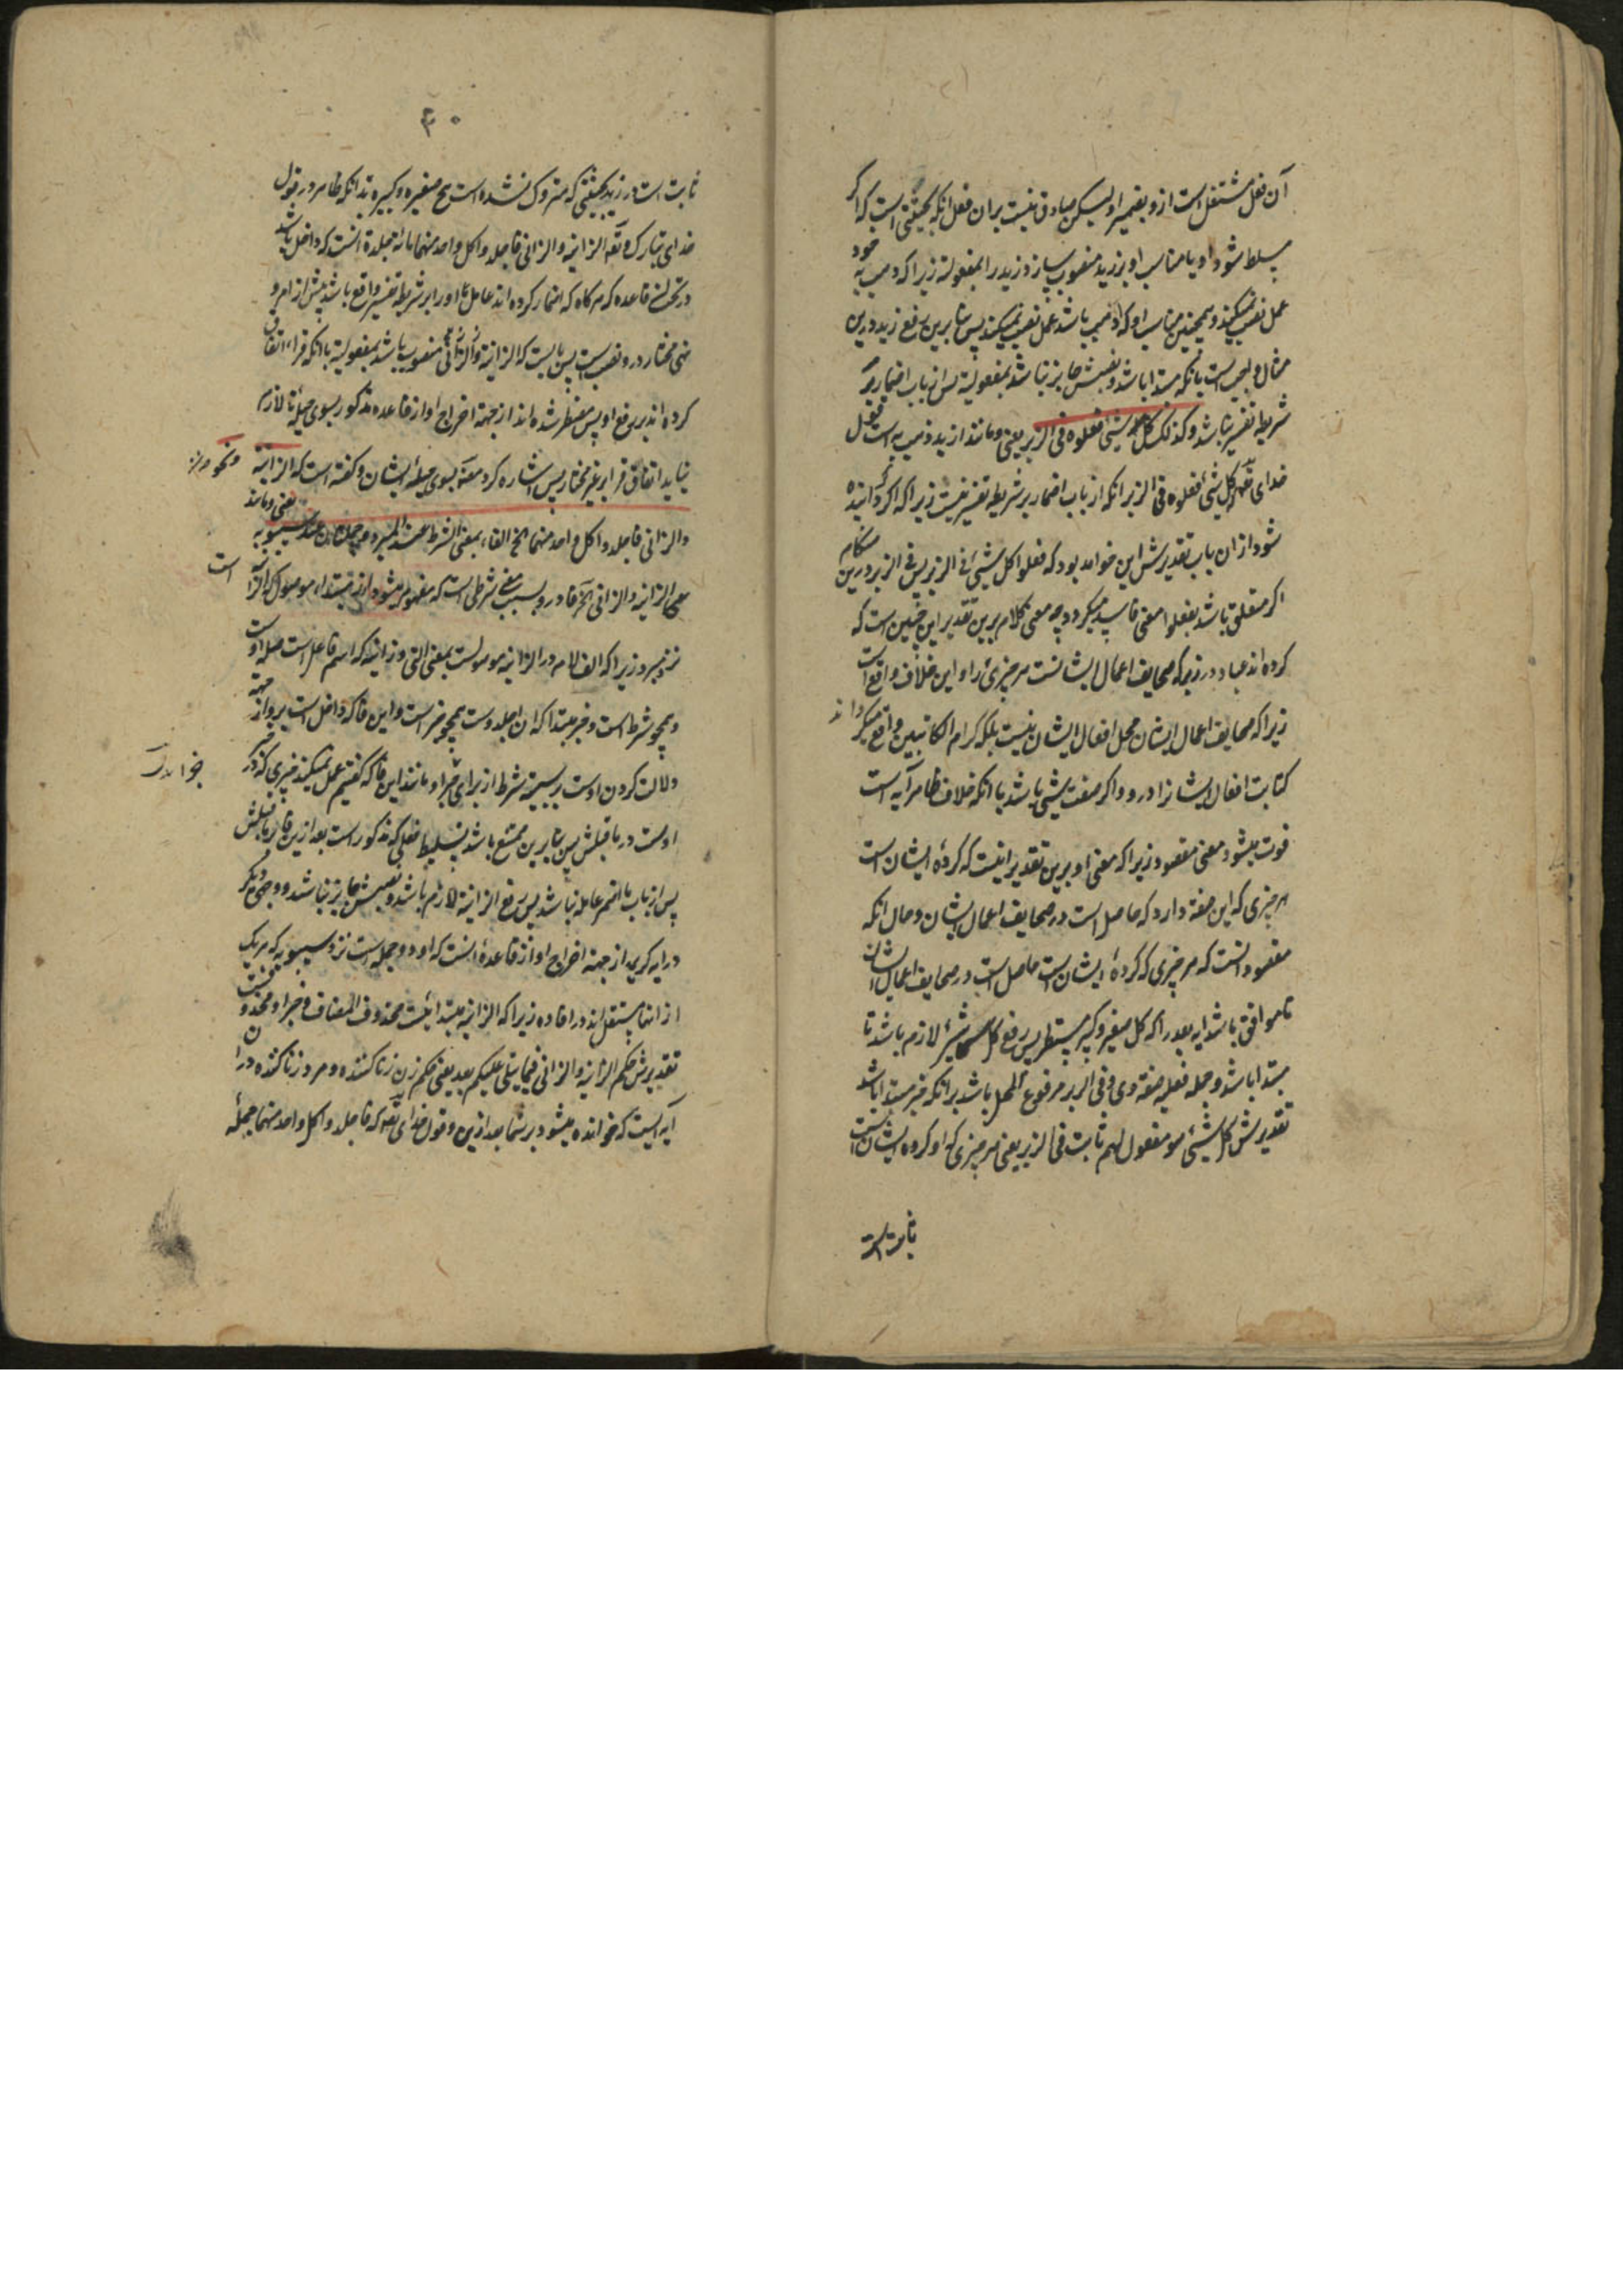 آن فعل مشتغل است ازو بضمیر او لیکن صادق نیست بران فعل انکه بحیثیتی است که اگر
مسلط شود او یا مناسب او بر زید منصوب سازد زید را بمفعولیة زیرا که ذهب به خود
عمل نصب نمیکند و همچنین مناسب او که اذهب باشد عمل نصب نمیکند پس بنابرین رفع زید درین
مثال واجب است بانکه مبتدا باشد و نصبش جایز نباشد بمفعولیة پس از باب اضمار بر
شریطه تفسیر نباشد و کذلک کل شیء فعلوه فی الزبر یعنی و مانند ازید ذهب به است قول
خدای تعه کل شیء فعلوه فی الزبر انکه از باب اضمار بر شریطه تفسیر نیست زیرا که اگر گردانیده
شود از ان باب تقدیرش این خواهد بود که فعلوا کل شیء فی الزبر پس فی الزبر درین هنگام
اگر متعلق باشد بفعلوا معنی فاسد میگردد چه معنی کلام برین تقدیر این چنین است که
کرده اند عباد در زبر که صحایف اعمال ایشانست هر چیزی را و این خلاف واقع است
زیرا که صحایف اعمال ایشان محل افعال ایشان نیست بلکه کرام الکاتبین واقع میگرداند
کتابت افعال ایشانرا درو و اگر صفت شیء باشد با انکه خلاف ظاهر آیه است
فوت میشود معنی مقصود زیرا که معنی او برین تقدیر اینست که کردهٔ ایشان است
هر چیزی که این صفة دارد که حاصل است در صحایف اعمال ایشان و حال انکه
مقصود انست که هر چیزی که کردهٔ ایشان است حاصل است در صحایف اعمال ایشان
تا موافق باشد ایه بعد را که کل صغیر و کبیر مستطر پس رفع کل شیء لازم باشد تا
مبتدا باشد و جمله فعلیه صفة وی و فی الزبر مرفوع المحل باشد برانکه خبر مبتدا باشد
تقدیرش کل شیء هو مفعول لهم ثابت فی الزبر یعنی هر چیزی که او کرده ایشان است
ثابت است
۴۰
ثابت است در زبر بحیثیتی که متروک نشده است هیچ صغیره و کبیره بدانکه ظاهر در قول
خدای تبارک و تعه الزانیة والزانی فاجلدوا کل واحد منهما مائة جلدة انست که داخل باشد
در تحت این قاعده که هرگاه که اضمار کرده اند عامل اورا بر شریطه تفسیر واقع باشد پیش از امر و
نهی مختار درو نصب است پس بایست که الزانیة والزانی منصوب باشد بمفعولیة با انکه قراء اتفاق
کرده اند بر رفع او پس مضطر شده اند از جهة اخراج او از قاعده مذکور بسوی حیله تا لازم
نیاید اتفاق قرا بر غیر مختار پس اشاره کرد مصنف بسوی حیله ایشان و گفته است که الزانیة و نحو
والزانی فاجلدوا کل واحد منهما الخ الفاء بمعنی الشرط عند المبرد و جملتان عند سیبویه یعنی و مانند
الزانیة والزانی فا درو بسبب معنی شرطی است که مفهوم میشود از مبتداء موصول است
نزد مبرد زیرا که الف لام در الزانیة موصولست بمعنی التی و زانیه که اسم فاعل است صله اوست
و همچو شرط است و خبر مبتدا که ان اجلدوست همچو جزاست و این فا که داخل است برو از جهة
دلالت کردن اوست بر سببیة شرط از برای جزا و مانند این فا که گفتیم عمل نمیکند چیزی که در
خواندن
اوست در ماقبلش پس بنابرین ممتنع باشد تسلیط فعلی که مذکور است بعد ازین فا بر ماقبلش
پس از باب ما اضمر عامله نباشد پس رفع الزانیة لازم باشد و نصبش جایز نباشد و وجهی دیگر
در ایه کریمه از جهة اخراج او از قاعده انست که او دو جمله است نزد سیبویه که هر یک
از انها مستقل اند در افاده زیرا که الزانیة مبتدائیست محذوف المضاف و خبر او محذوف
تقدیرش حکم الزانیة والزانی فیما یتلی علیکم بعد یعنی حکم زن زنا کننده و مرد زنا کننده در
آیه ایست که خوانده میشود بر شما بعد ازین و قول خدای تعه که فاجلدوا کل واحد منهما جملهٔ